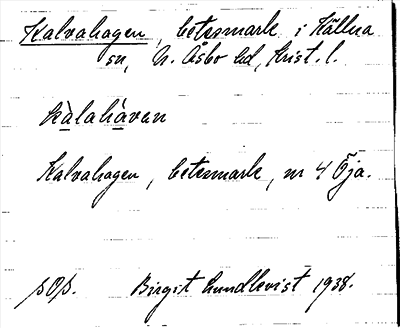 Kalvahagen, betesmark i Källna
sn, N. Åsbo hd, Krist. l.
kàlahàvan
Kalvahagen, betesmark, nr 4 Öja.
Birgit Lundkvist 1938.